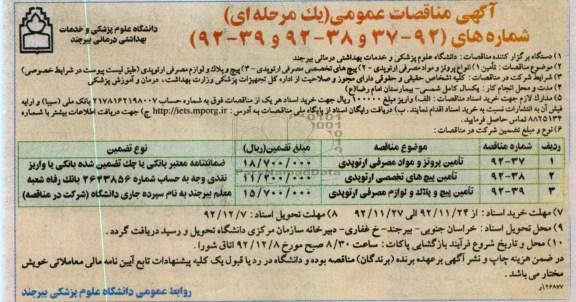 آگهی مناقصات عمومی(یك مرحله ای)
شماره های (۹۲-۳۷ و ۳۸-۹۲ و ۳۹-۹۲)
دانشگاه علوم پزشکی و خدمات
بهداشتی درمانی بیرجند
۱) دستگاه برگزار کننده مناقصات: دانشگاه علوم پزشکی و خدمات بهداشتی درمانی بیرجند
۲) موضوع مناقصات: تأمین ۱) انواع پروتز و مواد مصرفی ارتوپدی ۲) پیچ های تخصصی مصرفی ارتوپدی ۳) پیچ و پلاك و لوازم مصرفی ارتوپدی (طبق لیست پیوست در شرایط خصوصی)
۳) شرایط شرکت در مناقصات: کلیه اشخاص حقیقی و حقوقی دارای مجوز و صلاحیت از اداره کل تجهیزات پزشکی وزارت بهداشت، درمان و آموزش پزشکی
۴) مدت و محل انجام کار: یکسال کامل شمسی- بیمارستان امام رضا(ع)
۵) مدارك لازم جهت خرید اسناد: الف) واریز مبلغ ۱۰۰۰۰۰ ریال جهت خرید اسناد هر یك از مناقصات فوق به شماره حساب ۲۱۷۸۱۶۲۱۹۸۰۰۷ بانك ملی (سیبا) و ارایه
فیش آن به انتشارات نسبت به خرید اسناد اقدام نمایند. ب) دریافت رایگان اسناد از پایگاه ملی مناقصات به آدرس: http://iets.mporg.ir ج) جهت دریافت اطلاعات بیشتر با شماره
۸۸۲۵۱۳۴ تماس حاصل فرمایید.
۶) نوع و مبلغ تضمین شرکت در مناقصات:
ردیف شماره مناقصه موضوع مناقصه مبلغ تضمین(ریال) نوع تضمین
۱ ۹۲-۳۷ تأمین پروتز و مواد مصرفی ارتوپدی ۱۸/۷۰۰/۰۰۰ ضمانتنامه معتبر بانکی یا چك تضمین شده بانکی یا واریز
۲ ۹۲-۳۸ تأمین پیچ های تخصصی ارتوپدی ۱۱/۴۰۰/۰۰۰ نقدی وجه به حساب شماره ۲۶۲۳۸۵۶ بانك رفاه شعبه
۳ ۹۲-۳۹ تأمین پیچ و پلاك و لوازم مصرفی ارتوپدی ۱۵/۷۰۰/۰۰۰ معلم بیرجند به نام سپرده جاری دانشگاه (شرکت در مناقصه)
۷) مهلت خرید اسناد: از ۹۲/۱۱/۲۳ الی ۹۲/۱۱/۲۷ ۸) مهلت تحویل اسناد: ۹۲/۱۲/۷
۹) محل تحویل اسناد: خراسان جنوبی- بیرجند- خ غفاری- دبیرخانه سازمان مرکزی دانشگاه تحویل و رسید دریافت گردد.
۱۰) محل و تاریخ شروع فرآیند بازگشایی پاکات: ساعت ۸/۳۰ صبح مورخ ۹۲/۱۲/۸ اتاق شورا.
در ضمن هزینه چاپ و نشر آگهی برعهده برنده (برندگان) مناقصه بوده و دانشگاه در رد یا قبول یك کلیه پیشنهادات تابع آیین نامه مالی معاملاتی خویش
مختار می باشد.
روابط عمومی دانشگاه علوم پزشکی بیرجند